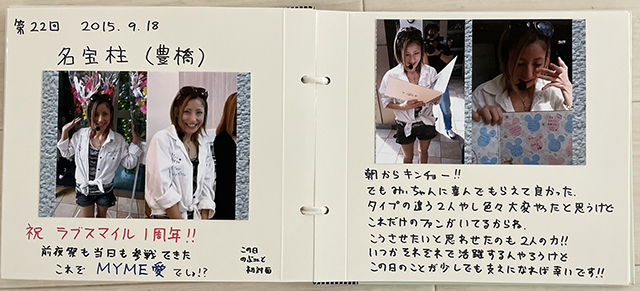 第22回 2015.9.18
名宝柱 (豊橋)
祝 ラブスマイル1周年!!
前夜祭も当日も参戦できた
これぞ MYME愛 でしょ!?
この日
のぶっと
初対面
朝からキンチョー!!
でもみぃちゃんに喜んでもらえて良かった。
タイプの違う2人やし色々大変やったと思うけど
これだけのファンがいてるからね。
こうさせたいと思わせたのも2人の力!!
いつかそれぞれで活躍する人やろうけど
この日のことが少しでも支えになれば幸いです!!